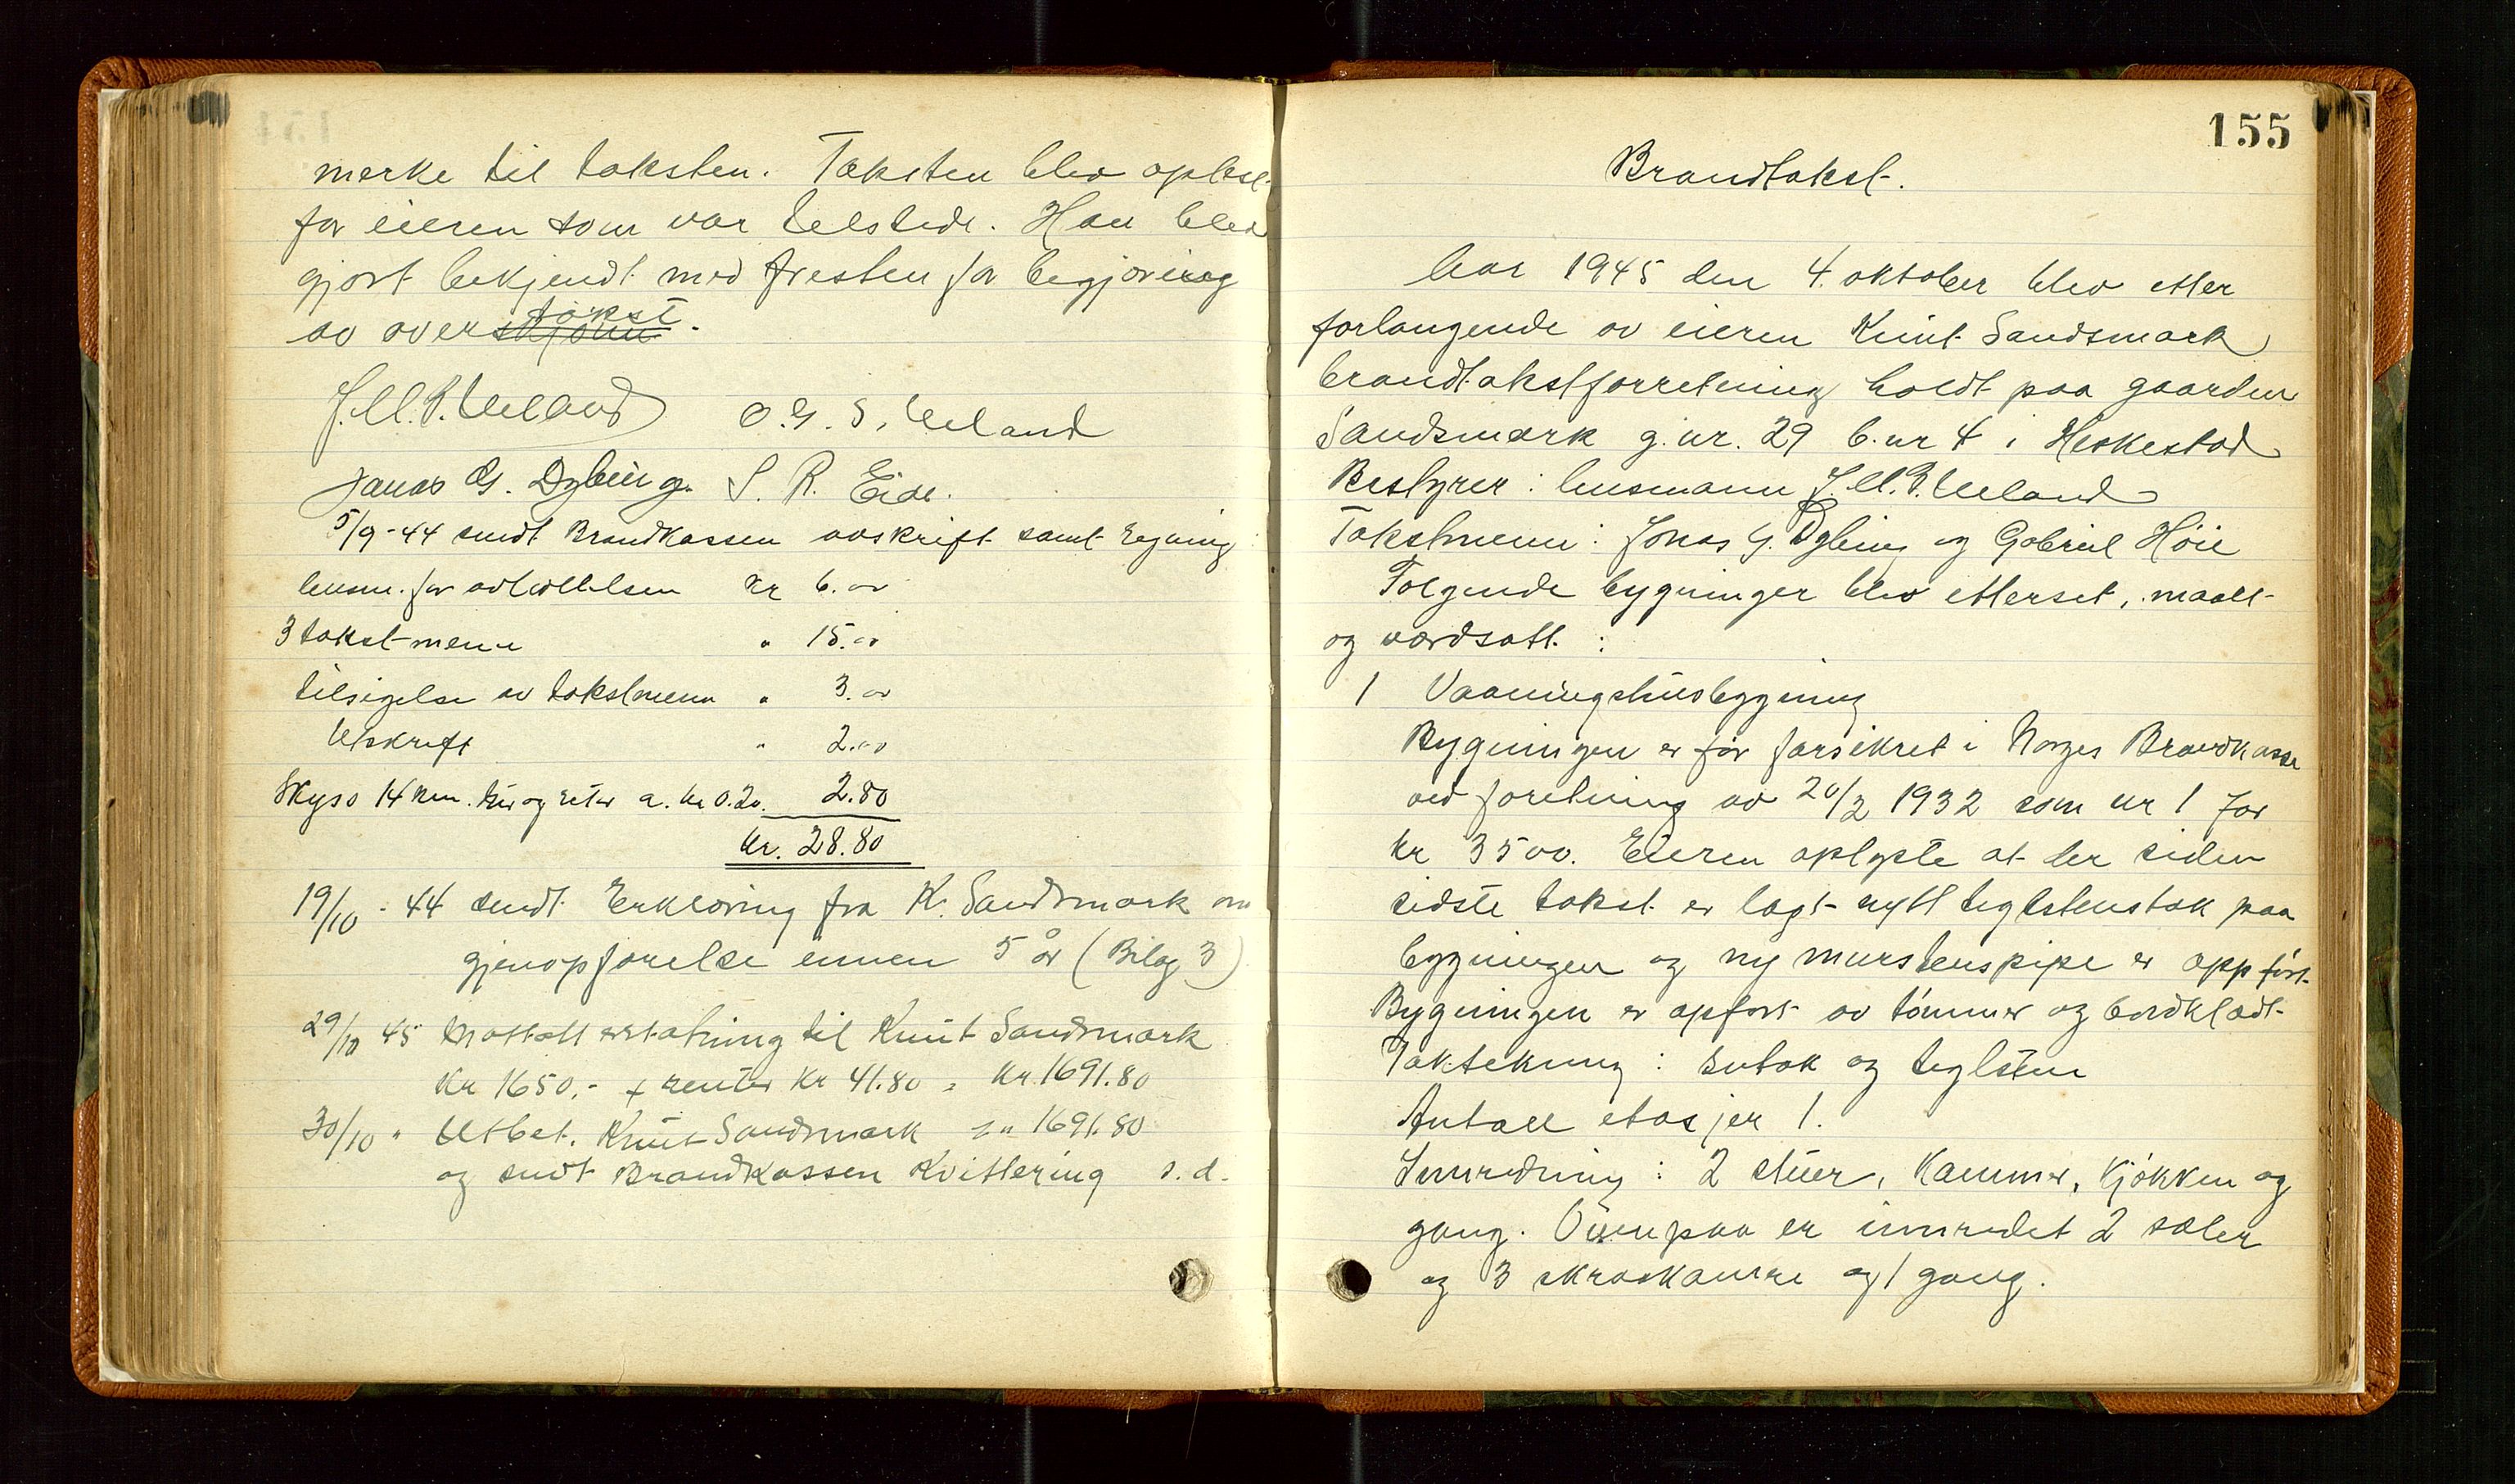 merke til taksten. Taksten blev oplest
for eieren som var tilstede. Han blev
gjort bekjendt med fristen for begjæring
av overskjønn takst.
J.M.S. Ueland O.G.S. Ueland
Jonas G. Dybing. S. R. Eide.
5/9-44 sendt Brandkassen avskrift samt regning
lensm. for avholdelsen kr 6.00
3 takst-menn " 15.00
tilsigelse av takstmenn " 3.00
Utskrift " 2.00
Skyss 14 km. hin og retur a. kr 0.20. 2.80
kr. 28.80
19/10 - 44 sendt Erklæring fra K. Sandsmark om
gjenopførelse innen 5 år (Bilag 3)
29/10 45 Mottatt erstatning til Knut Sandsmark
Kr 1650,- + renter kr 41.80 = kr. 1691.80
30/10 " Utbet. Knut Sandsmark = " 1691.80
og sendt Brandkassen Kvittering s.d.
155
Brandtakst.
Aar 1945 den 4. oktober blev etter
forlangende av eieren Knut Sandsmark
brandtakstforretning holdt paa gaarden
Sandsmark g.nr. 29 b.nr 4 i Heskestad
Bestyrer : lensmann J.M.S. Ueland
Takstmenn : Jonas G. Dybing og Gabriel Høie
Følgende bygninger blev etterset, maalt
og værdsatt :
1 Vaaningshusbygning
Bygningen er før forsikret i Norges Brandkasse
ved forretning av 20/2 1932 som nr 1 for
kr 3500. Eieren oplyste at der siden
sidste takst er lagt nytt teglstenstak paa
bygningen og ny murstenspipe er oppført.
Bygningen er opført av tømmer og bordklædt
Taktekning : sutak og teglsten
Antall etasjer 1.
Innredning : 2 stuer, Kammer, Kjøkken og
gang. Ovenpaa er innredet 2 saler
og 3 skraakamre og 1 gang.